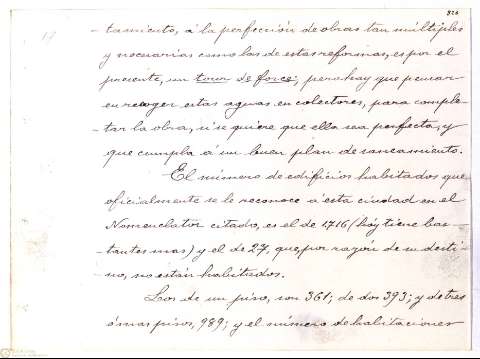 326
tamiento, á la perfección de obras tan múltiples
y necesarias como las de estas reformas, es por el
presente, un tour de force; pero hay que pensar
en recoger estas aguas en colectores, para comple-
tar la obra, si se quiere que ella sea perfecta, y
que cumpla á un buen plan de saneamiento.
El número de edificios habitados que
oficialmente se le reconoce á esta ciudad en el
Nomenclator citado, es el de 1716 (hoy tiene bas-
tantes mas) y el de 27, que, por razón de su desti-
no, no están habitados.
Los de un piso, son 361; de dos 393; y de tres
ó mas pisos, 989; y el número de habitaciones